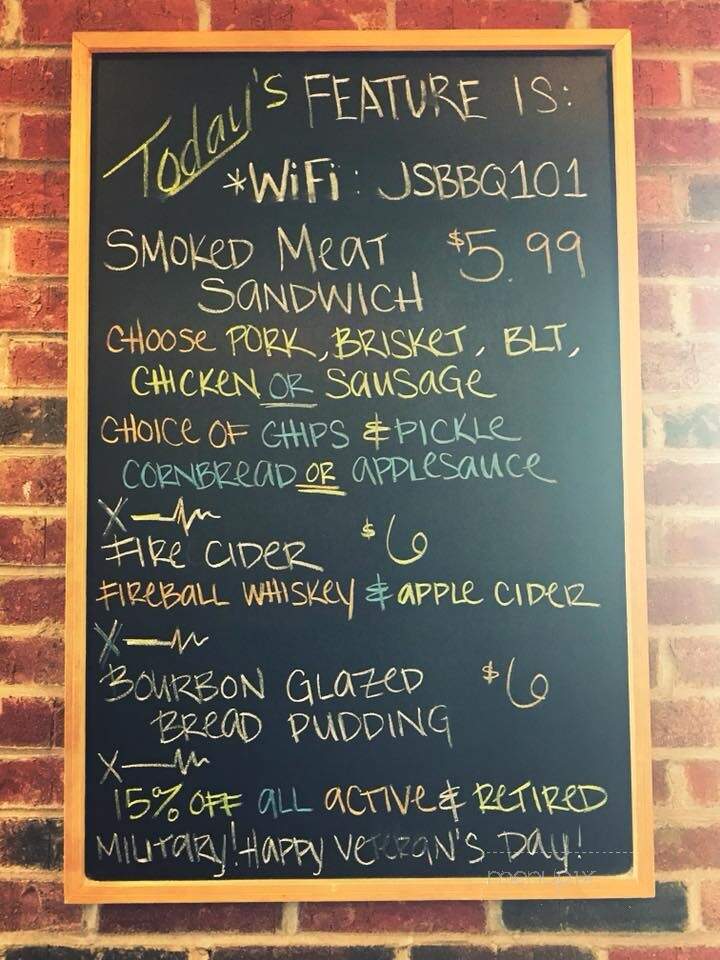 Today's FEATURE IS:
*WiFi: JSBBQ101
SMOKED MEAT $5.99
SANDWICH
CHOOSE PORK, BRISKET, BLT,
CHICKEN OR SAUSAGE
CHOICE OF CHIPS & PICKLE
CORNBREAD OR APPLESAUCE
FIRE CIDER $6
FIREBALL WHISKEY & APPLE CIDER
BOURBON GLAZED $6
BREAD PUDDING
15% OFF ALL ACTIVE & RETIRED
MILITARY! HAPPY VETERAN'S DAY!
menupix